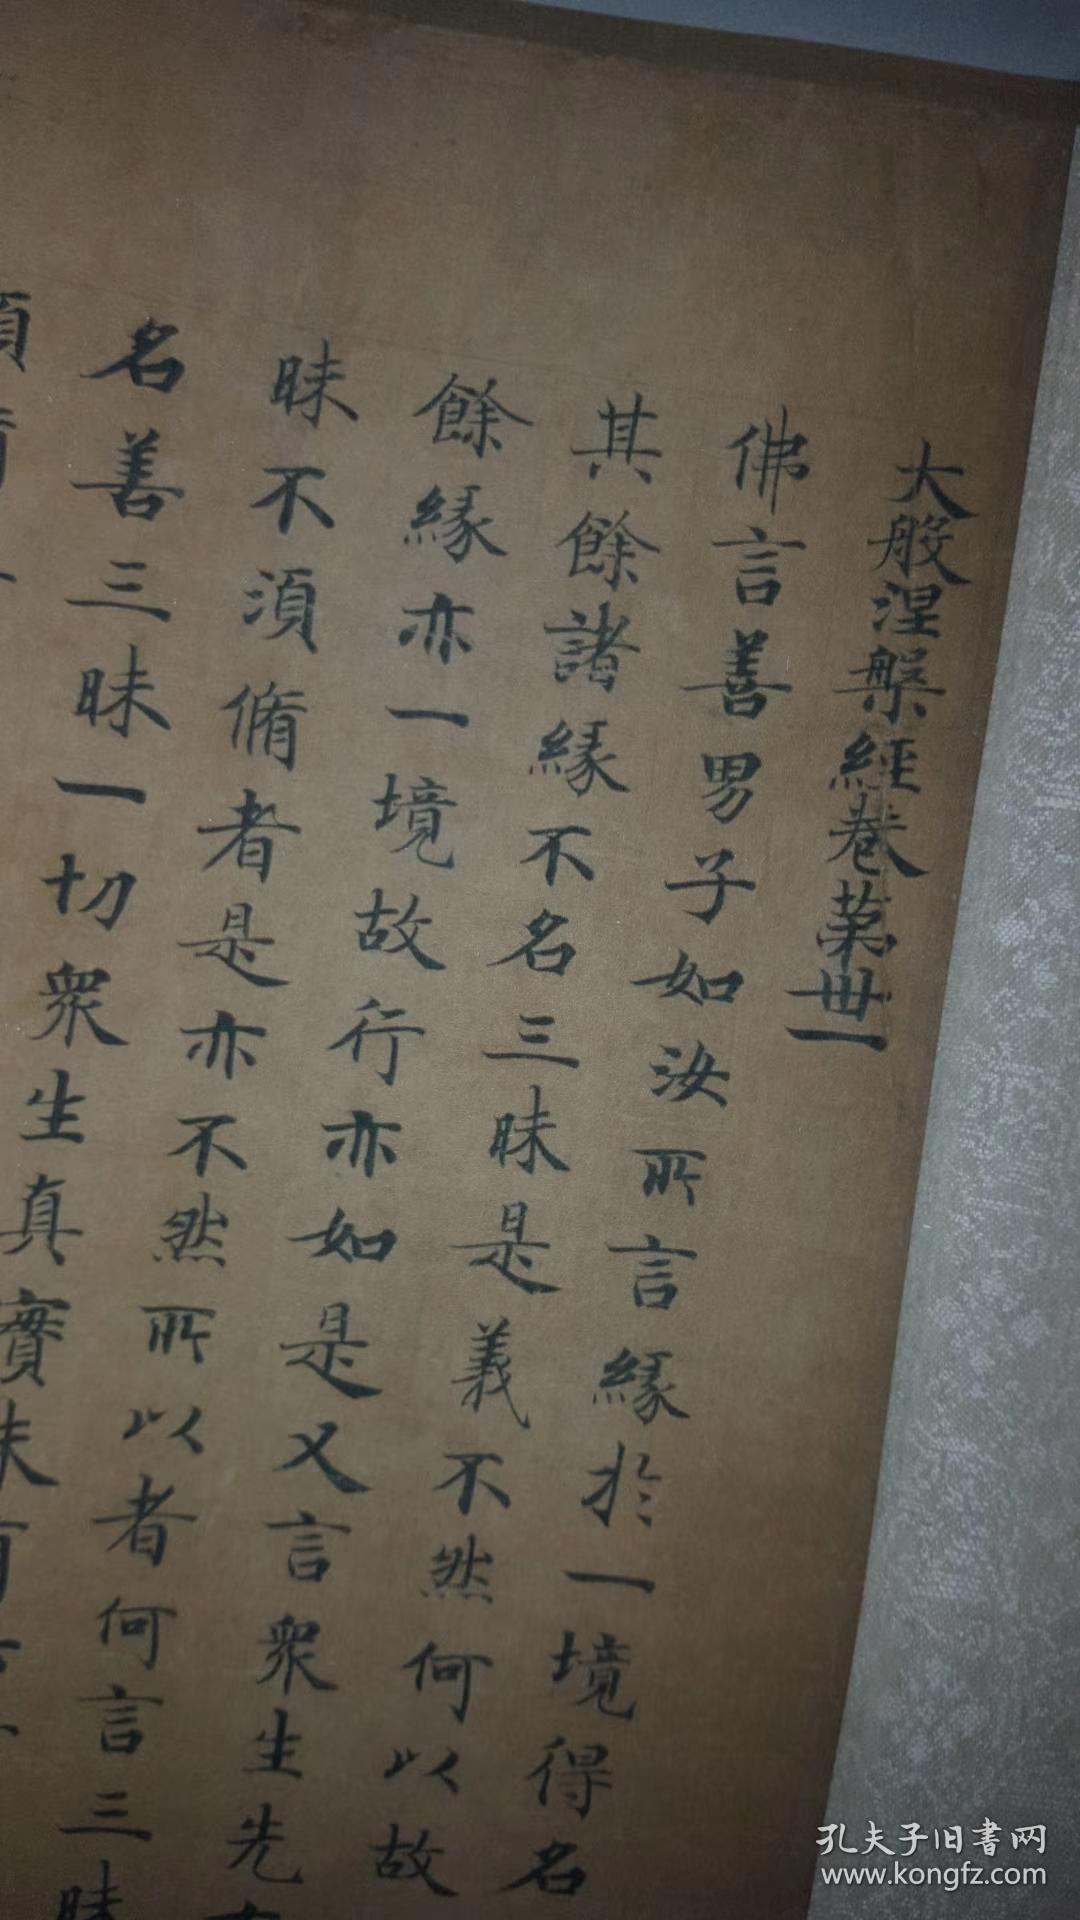 大般涅槃經卷苐卌一
佛言善男子如汝所言緣於一境得名
其餘諸緣不名三昧是義不然何以故
餘緣亦一境故行亦如是又言眾生先
昧不湏脩者是亦不然所以者何言三昧
名善三昧一切眾生真實
孔夫子旧書网
www.kongfz.com